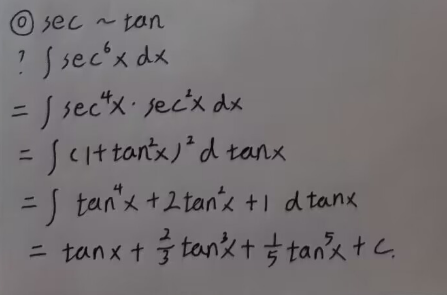 ⓪ sec ~ tan
? ∫ sec⁶x dx
= ∫ sec⁴x · sec²x dx
= ∫ (1+tan²x)² d tanx
= ∫ tan⁴x + 2tan²x + 1 d tanx
= tanx + 2/3 tan³x + 1/5 tan⁵x + C.